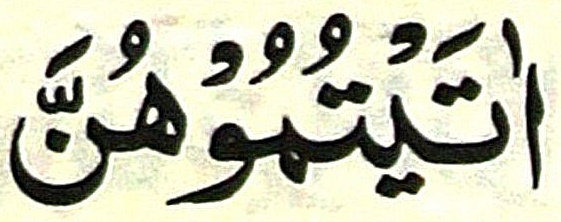 اٰتَيْتُمُوْهُنَّ